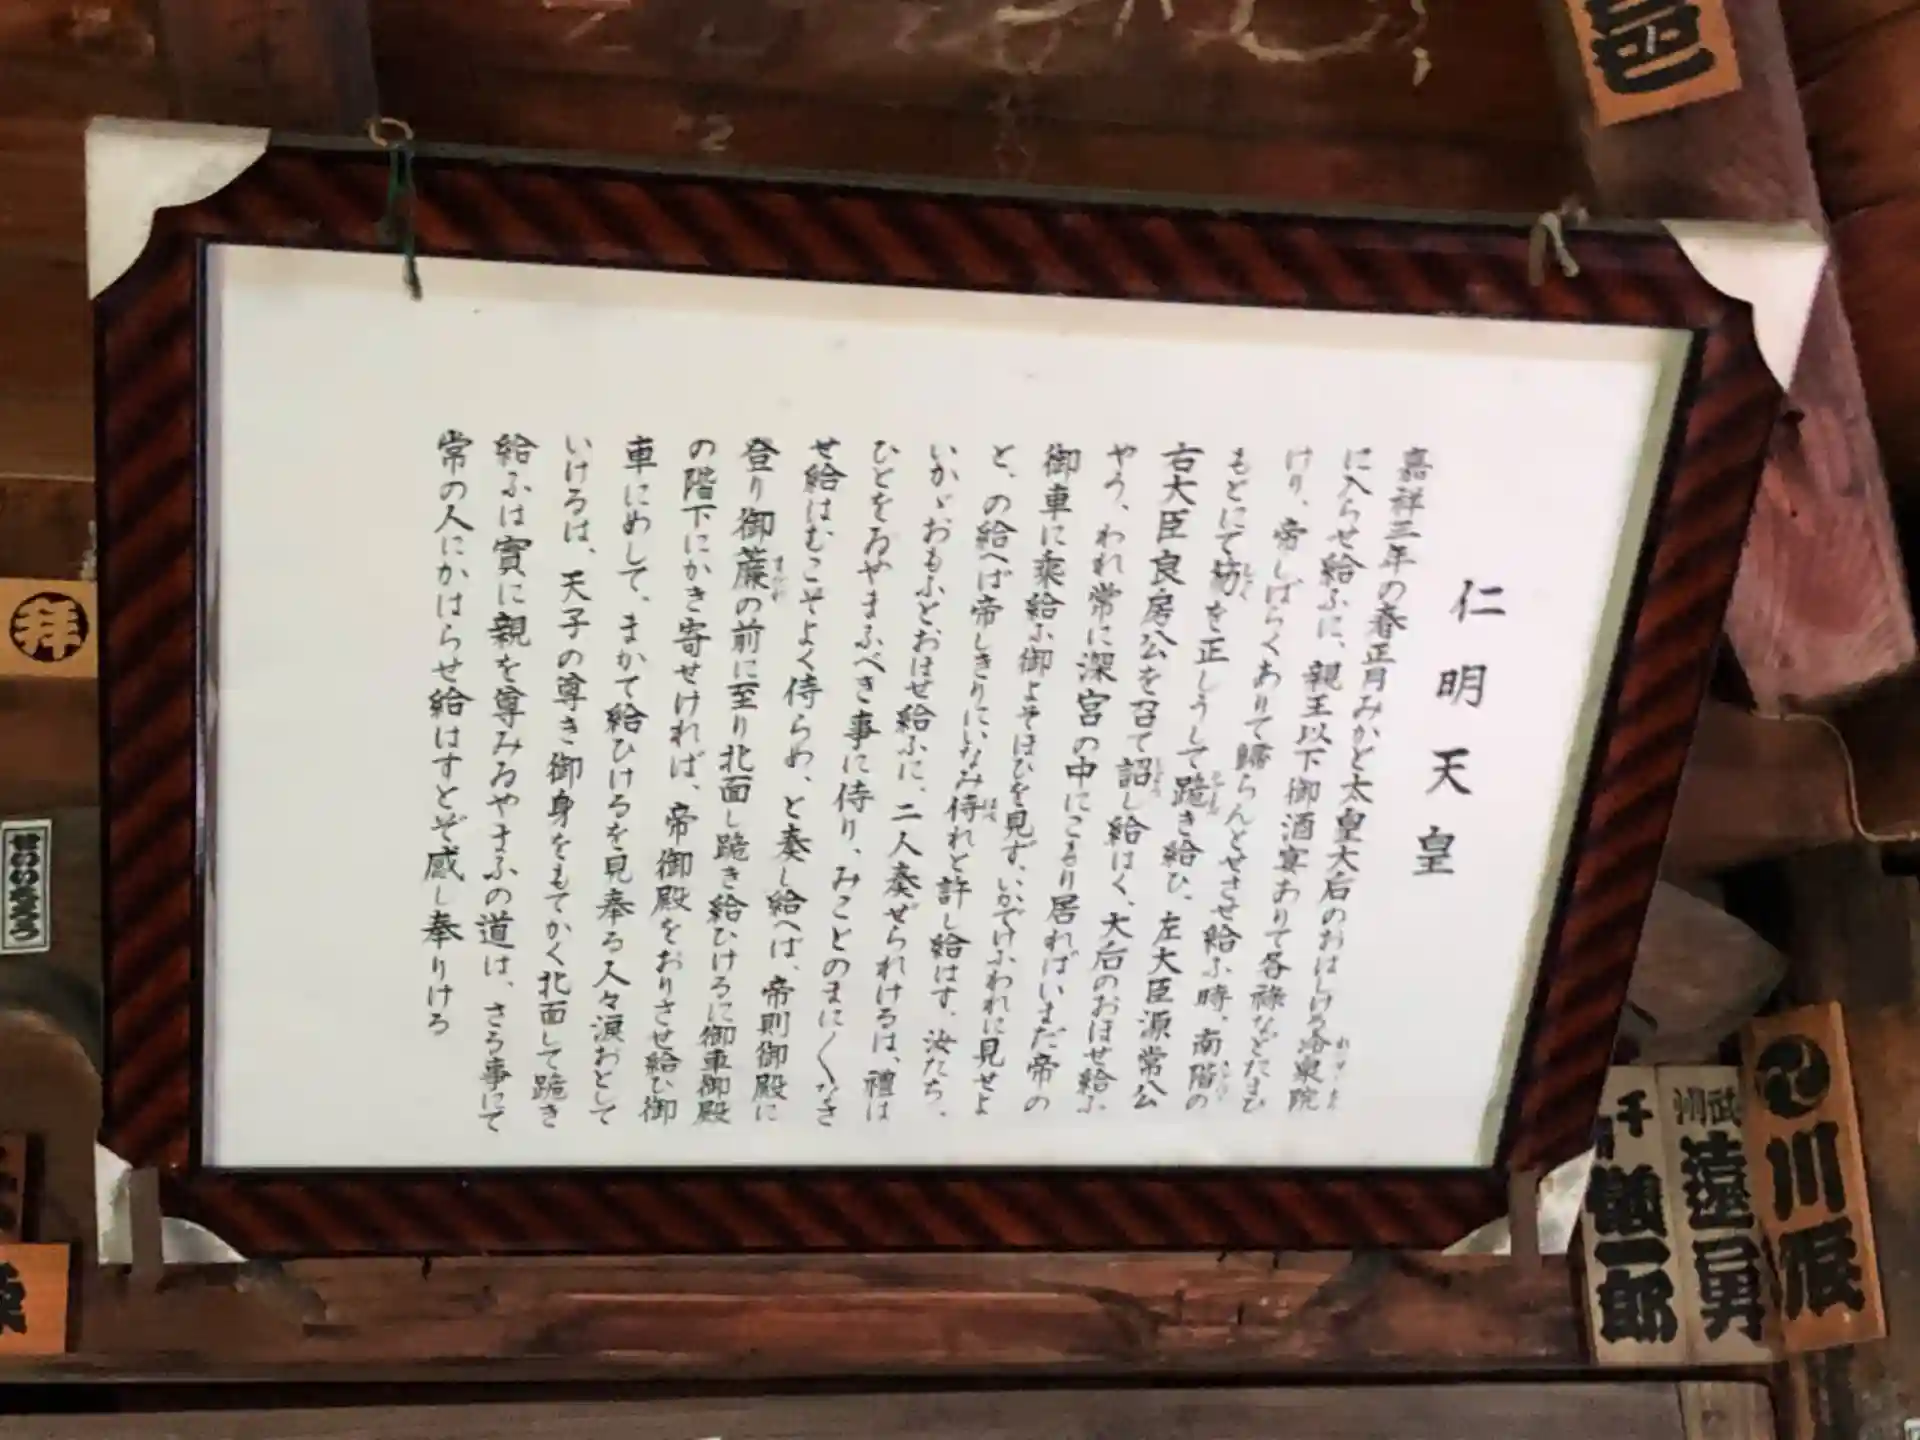 仁明天皇
嘉祥三年の春正月みかど太皇大后のおはしける冷泉院
に入らせ給ふに、親王以下御酒宴ありて各禄などたまひ
けり、帝しばらくありて歸らんとせさせ給ふ時、南階の
もとにて笏を正しうして跪き給ひ、左大臣源常公
右大臣良房公を召て詔し給はく、大后のおほせ給ふ
やう、われ常に深宮の中にこもり居ればいまだ帝の
御車に乘給ふ御よそほひを見ず、いかでけふわれに見せよ
と、の給へば帝しきりにいなみ侍れと許し給はす、汝たち、
いかゞおもふとおほせ給ふに、二人奏ぜられけるは、禮は
ひとをゐやまふべき事に侍り、みことのまに〱なさ
せ給はむこそよく侍らめ、と奏し給へば、帝則御殿に
登り御簾の前に至り北面し跪き給ひけるに御車御殿
の階下にかき寄せければ、帝御殿をおりさせ給ひ御
車にめして、まかて給ひけるを見奉る人々涙おとして
いけるは、天子の尊き御身をもてかく北面して跪き
給ふは實に親を尊みゐやまふの道は、さる事にて
常の人にかはらせ給はすとぞ感し奉りける
拝
川
武州
遠
男
千
一郎